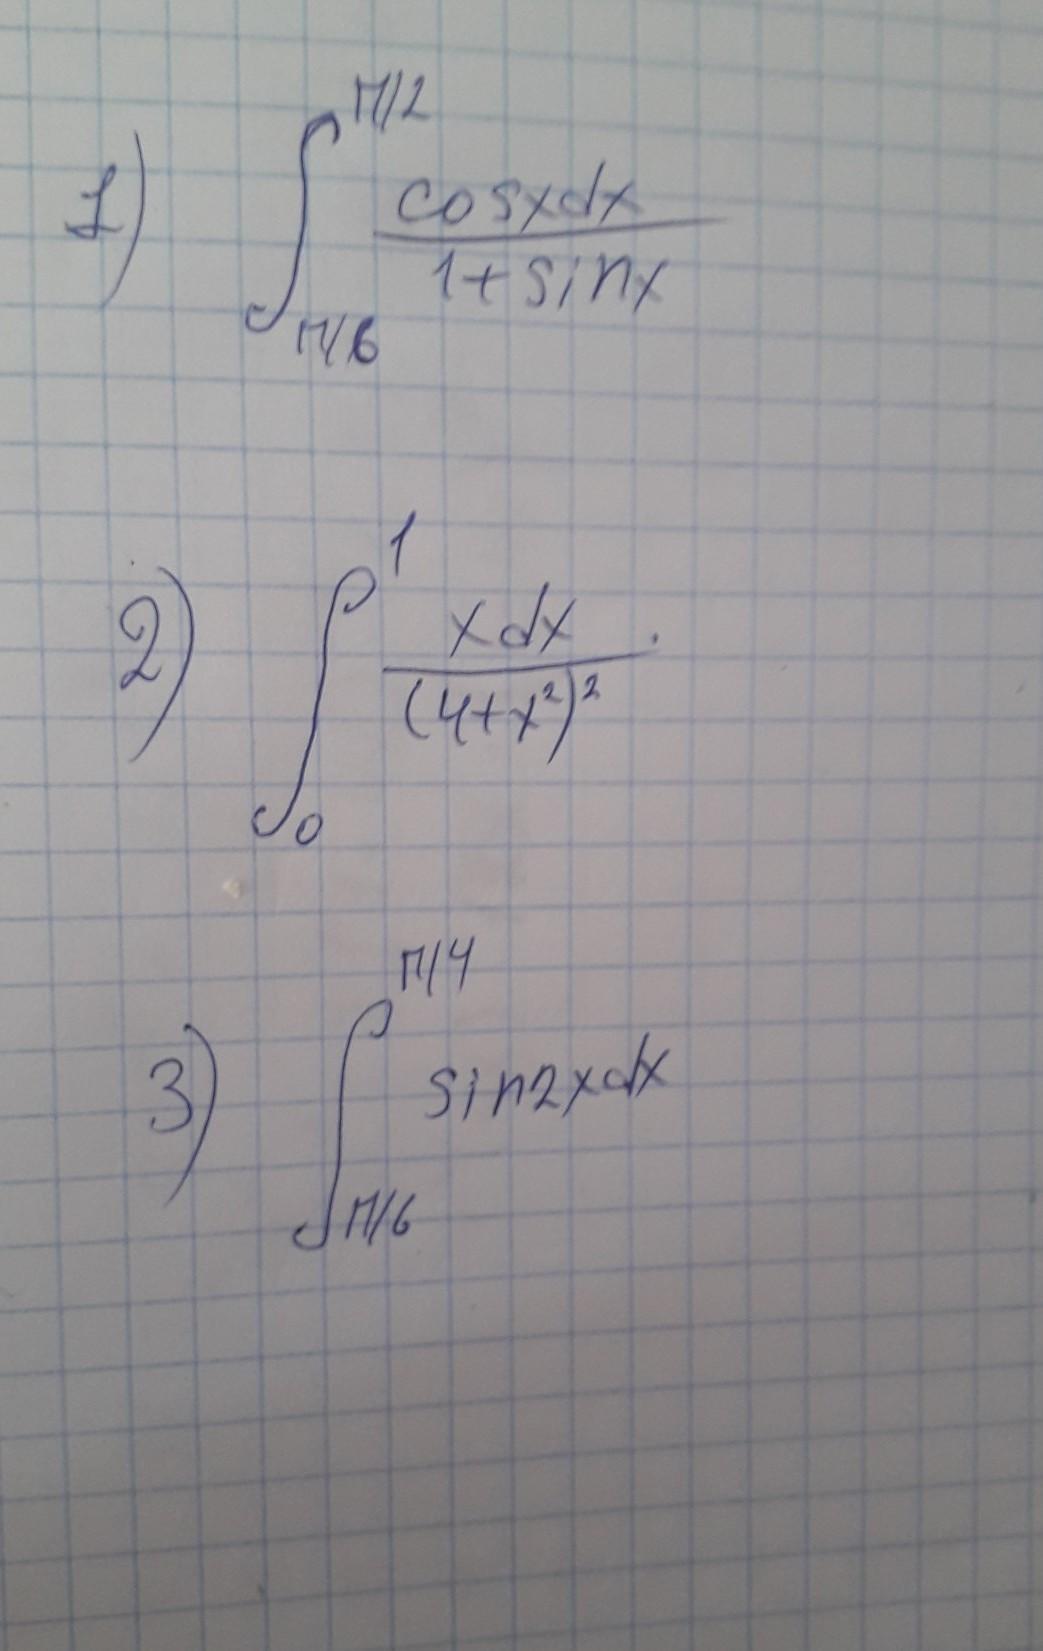 1) ∫_{π/6}^{π/2} cosxdx / 1+sinx
2) ∫_{0}^{1} xdx / (4+x²)²
3) ∫_{π/6}^{π/4} sin2xdx